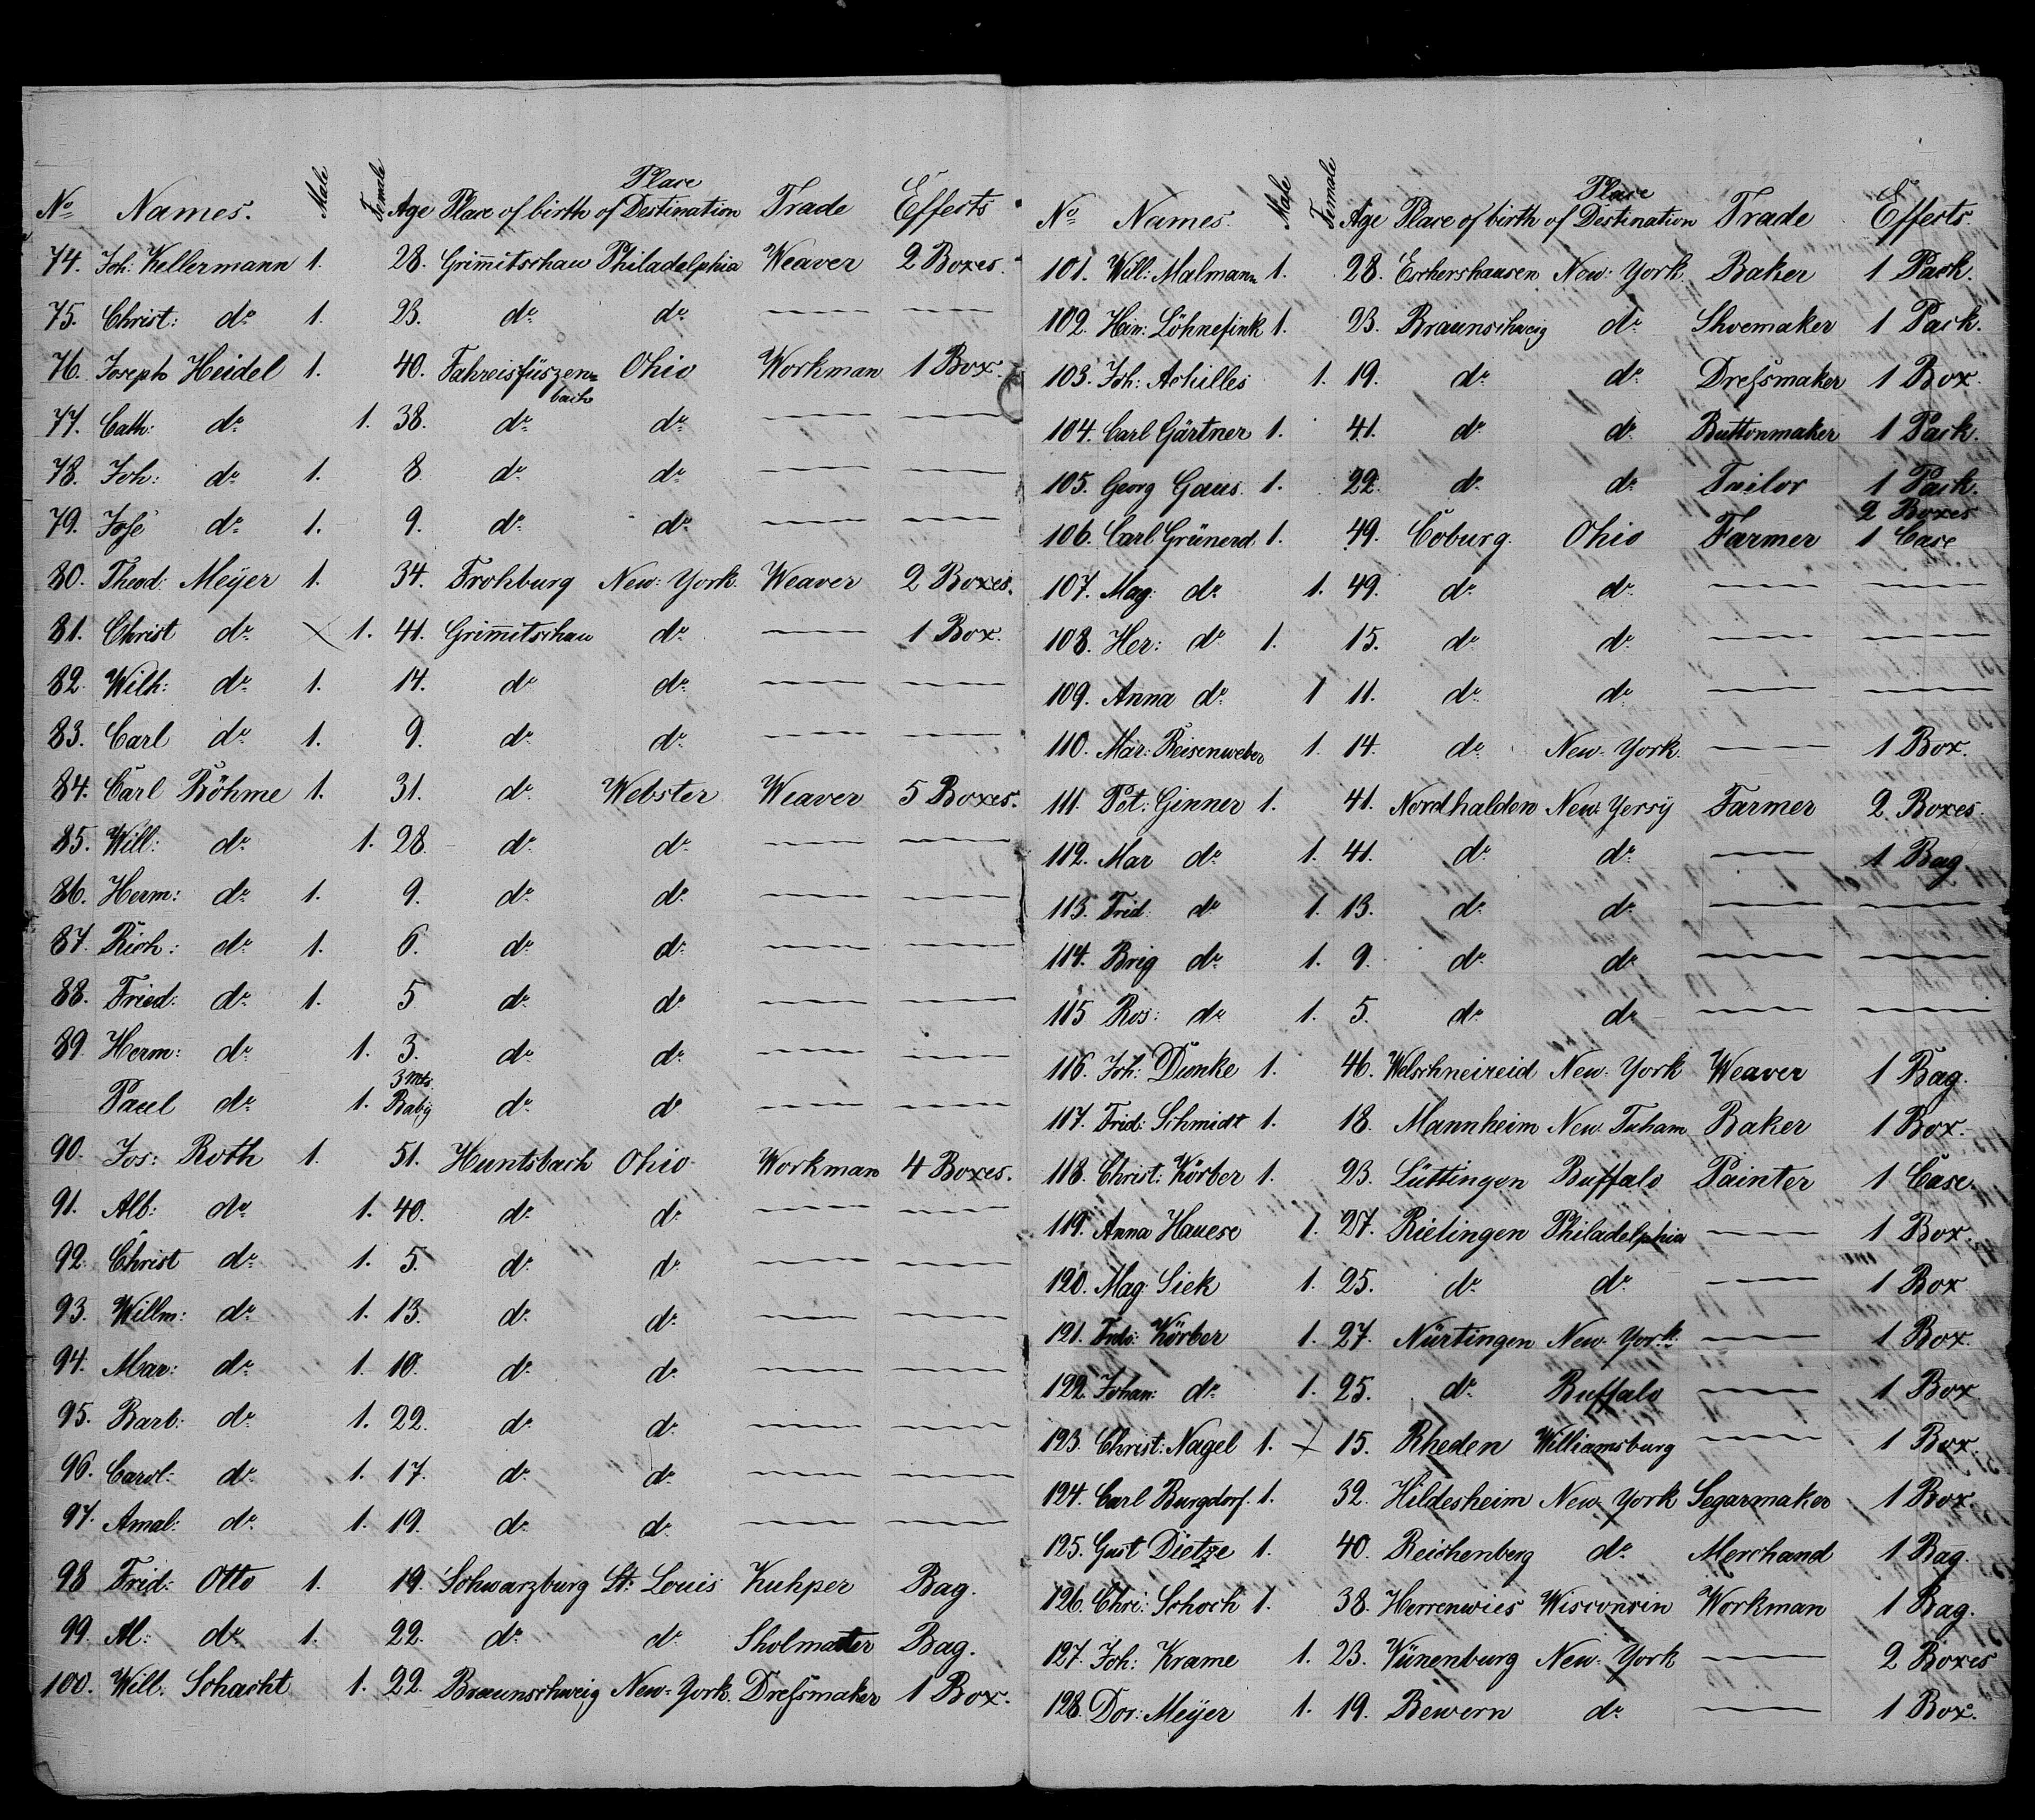 No Names. Male Female Age Place of birth Place of Destination Trade Effects
74. Joh: Kellermann 1. 28. Grimitschau Philadelphia Weaver 2 Boxes.
75. Christ: do 1. 23. do do
76. Joseph Heidel 1. 40. Ohio Workman 1 Box.
77. Cath: do 1. 38. do do
78. Joh: do 1. 8. do do
79. Jose do 1. 9. do do
80. Theod: Meÿer 1. 34. Frohburg New: York. Weaver 2 Boxes.
81. Christ do 1. 41. Grimitschau do 1 Box.
82. Wilh: do 1. 14. do do
83. Carl do 1. 9. do do
84. Carl Böhme 1. 31. do Webster Weaver 5 Boxes.
85. Will: do 1. 28. do do
86. Herm: do 1. 9. do do
87. Rich: do 1. 6. do do
88. Fried: do 1. 5 do do
89. Herm: do 1. 3. do do
Paul do 1. 3 mts. Babÿ do do
90. Jos: Roth 1. 51. Huntsbach Ohio Workman 4 Boxes.
91. Alb: do 1. 40. do do
92. Christ do 1. 5. do do
93. Willm: do 1. 13. do do
94. Mar: do 1. 10. do do
95. Barb: do 1. 22. do do
96. Carol: do 1. 17. do do
97. Amal: do 1. 19. do do
98 Frid: Otto 1. 19. Schwarzburg St: Louis Kuhper Bag.
99. Al: do 1. 22. do do Sholmaster Bag.
100. Will: Schacht 1. 22. Braunschweig New-York. Dressmaker 1 Box.
No Names. Male Female Age Place of birth Place of Destination Trade Effects.
101. Will: Malmann 1. 28. Eschershausen New: York. Baker 1 Pack.
102. Hein: Löhnefink 1. 23. Braunschweig do Shoemaker 1 Pack.
103. Joh: Achilles 1. 19. do do Dressmaker 1 Box.
104. Carl Gärtner 1. 41. do do Buttonmaker 1 Pack.
105. Georg Gaus. 1. 22. do do Tailor 1 Pack.
106. Carl Grünerd 1. 49. Coburg. Ohio Farmer 2 Boxes 1 Case
107. Mag: do 1. 49. do do
108. Her: do 1. 15. do do
109. Anna do 1 11. do do
110. Mar: Reisenweber 1. 14. do New-York. 1 Box.
111. Pet: Ginner 1. 41. Nordhalden New: Yersÿ Farmer 2 Boxes.
112. Mar do 1. 41. do do 1 Bag
113. Frid: do 1. 13. do do
114. Brig do 1. 9. do do
115 Ros: do 1. 5. do do
116. Joh: Dunke 1. 46. Welschneireid New: York Weaver 1 Bag.
117. Frid: Schmidt 1. 18. Mannheim New: Baker 1 Box.
118. Christ: Körber 1. 23. Lüttingen Buffalo Painter 1 Case.
119. Anna Hauese 1. 27. Rielingen Philadelphia 1 Box.
120. Mag: Siek 1. 25. do do 1 Box
121. Körber 1. 27. Nürtingen New-York. 1 Box.
122. Johan: do 1. 25. do Buffalo 1 Box
123. Christ: Nagel 1. 15. Rheden Williamsburg 1 Box.
124. Carl Burgdorf. 1. 32. Hildesheim New York Segarmaker 1 Box.
125. Gust Dietze 1. 40. Reichenberg do Merchand 1 Bag.
126. Chri: Schoch 1. 38. Herrenwies Wisconsin Workman 1 Bag.
127. Joh: Krame 1. 23. Vünenburg New: York 2 Boxes
128. Dor: Meÿer 1. 19. Bewern do 1 Box.